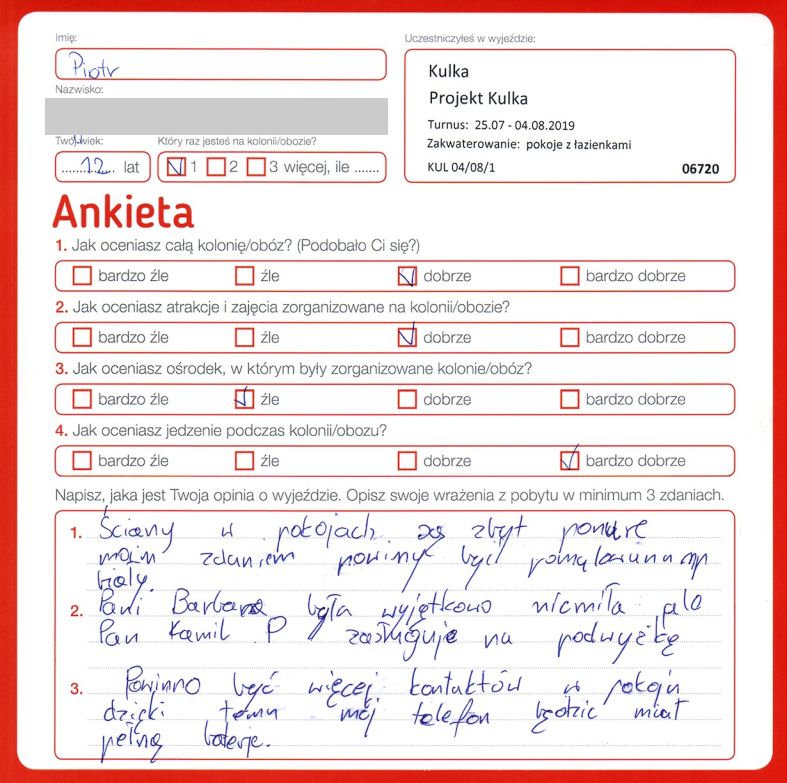 Imię:
Piotr
Uczestniczyłeś w wyjeździe:
Kulka
Projekt Kulka
Turnus: 25.07 - 04.08.2019
Zakwaterowanie: pokoje z łazienkami
KUL 04/08/1 06720
Nazwisko:
Twój wiek:
12 lat
Który raz jesteś na kolonii/obozie?
1 2 3 więcej, ile .......
Ankieta
1. Jak oceniasz całą kolonię/obóz? (Podobało Ci się?)
bardzo źle źle dobrze bardzo dobrze
2. Jak oceniasz atrakcje i zajęcia zorganizowane na kolonii/obozie?
bardzo źle źle dobrze bardzo dobrze
3. Jak oceniasz ośrodek, w którym były zorganizowane kolonie/obóz?
bardzo źle źle dobrze bardzo dobrze
4. Jak oceniasz jedzenie podczas kolonii/obozu?
bardzo źle źle dobrze bardzo dobrze
Napisz, jaka jest Twoja opinia o wyjeździe. Opisz swoje wrażenia z pobytu w minimum 3 zdaniach.
1. Ściany w pokojach są zbyt ponure
moim zdaniem powinny być np
biały.
2. Pani Barbara była wyjętkowo niemiła ale
Pan Kamil P zasługuje na podwyżkę
3. Powinno być więcej kontaktów w pokoju
dzięki temu mój telefon będzie miał
pełną baterje.